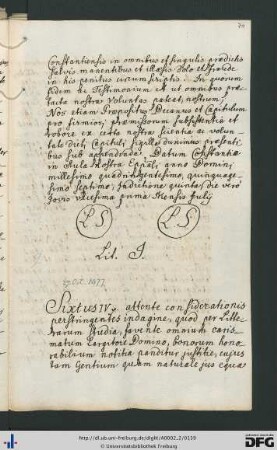 74
Constantiensis in omnibus et singulis prædictis
salvis manentibus et illæsis Dolo et fraude
in his penitus circumscriptis. In quorum
fidem ac Testimonium et ut omnibus præ-
facta nostra voluntas pateat, nostrum,
Nos etiam Præpositus Decanus et Capitulum
pro firmiori præmissorum subsistentia et
robore ex certa nostra scientia ac volun-
tate dicti Capituli sigilla duximus præsenti-
bus sub appendenda. Datum Constantiæ
in Aula Nostra Eppali, anno Domini,
millesimo quadringentesimo, quinquage-
simo septimo, Indictione quinta, die vero
Jovis vicesima prima Mensis Julij
L S L S
Lit. J.
1477
Sixtus IV. attente considerationis
perstringentes indagine, quod per Litte-
rarum studia, favente omnium caris-
matum Largitore Domino, bonorum hono-
rabilium notitia panditur justitiæ, cujus
tam Gentium quam naturale jus æqua
http://dl.ub.uni-freiburg.de/diglit/h0002_2/0139
© Universitätsbibliothek Freiburg